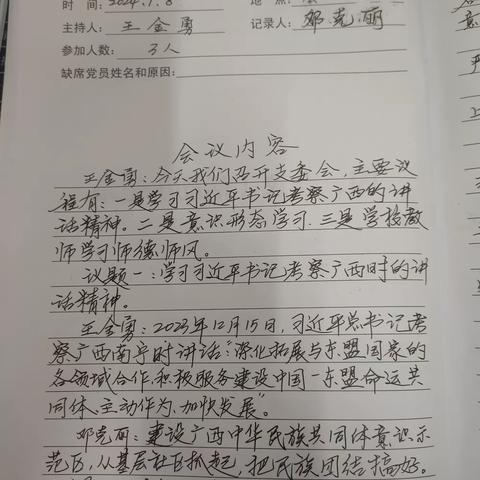 时 间: 2024.1.8 地 点:
主持人: 王金勇 记录人: 邓克丽
参加人数: 3人
缺席党员姓名和原因:
会议内容
王金勇:今天我们召开支委会,主要议
程有:一是学习习近平书记考察广西的讲
话精神。二是意识形态学习.三是学校教
师学习师德师风。
议题一:学习习近平书记考察广西时的讲
话精神。
王金勇:2023年12月15日,习近平总书记考
察广西南宁时讲话:"深化拓展与东盟国家的
各领域合作,积极服务建设中国—东盟命运共
同体、主动作为、加快发展"。
邓克丽:建设广西中华民族共同体意识示
范区,从基层社区抓起,把民族团结搞好。